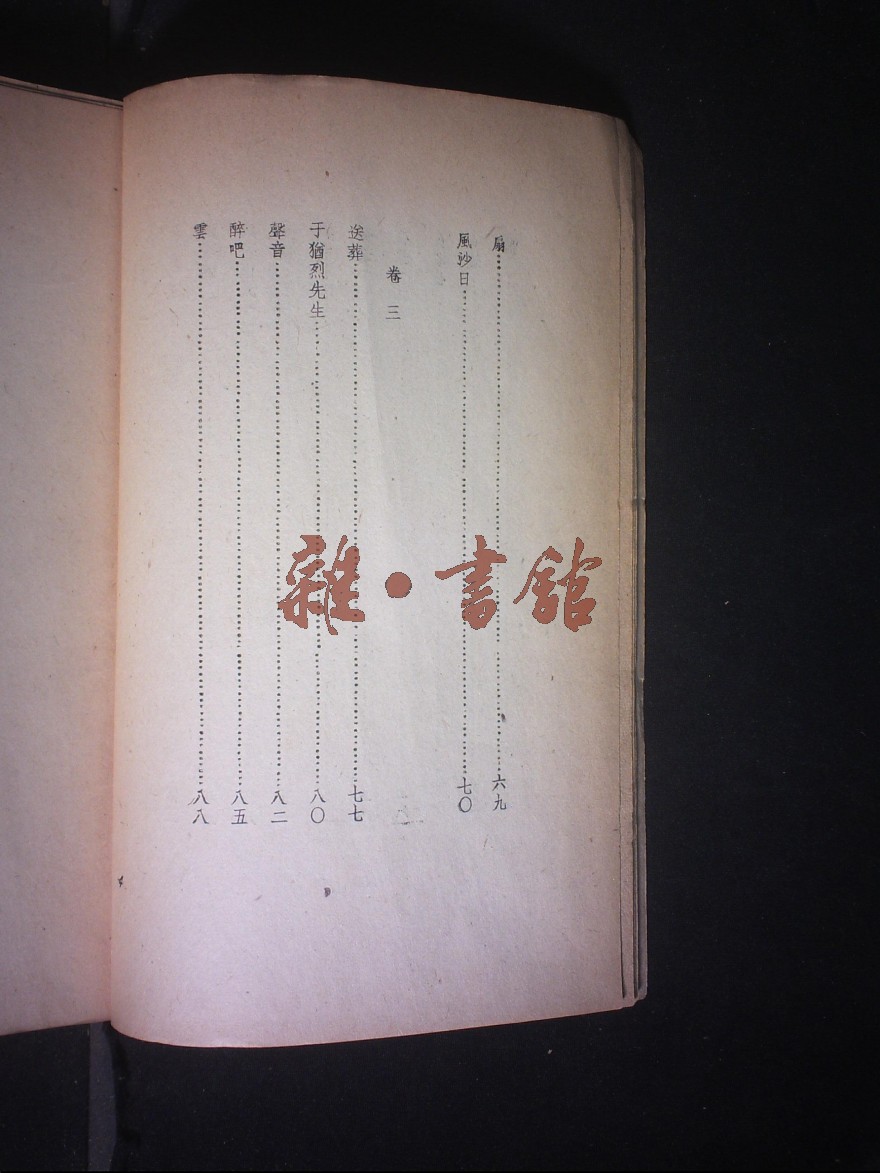 扇……六九
風沙日……七〇
卷 三
送葬……七七
于猶烈先生……八〇
聲音……八二
醉吧……八五
雲……八八
雜·書館